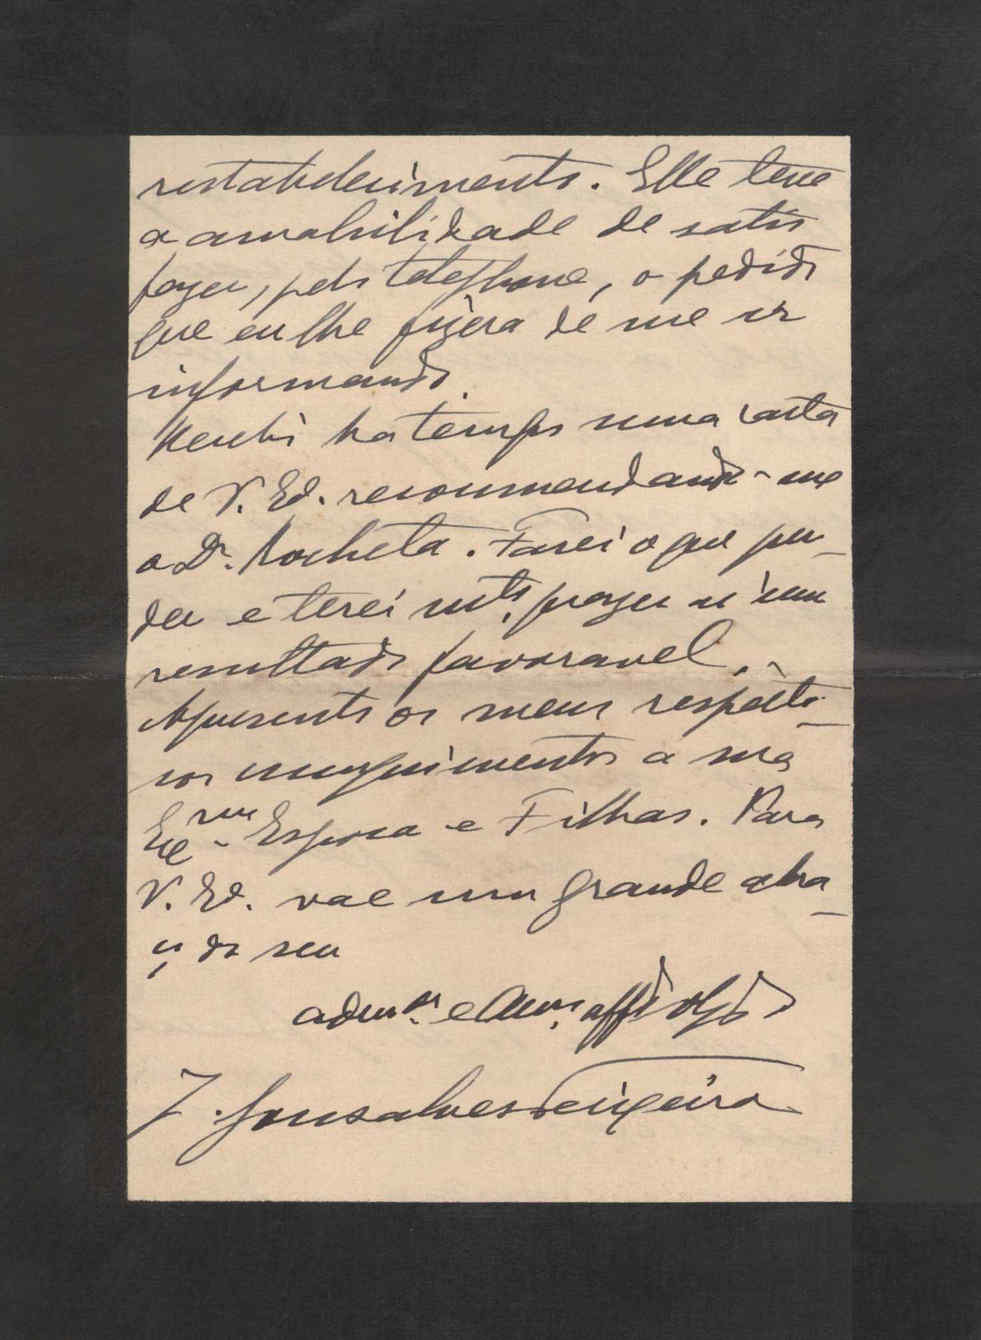 restabelecimento. Elle teve
a amabilidade de satis
fazer, pelo telephone, o pedido
que eu lhe fizera de me ir
informando.
Recebi ha tempos uma carta
de V. Ex. recommendando-me
o Dr. Rocheta. Farei o que pu-
der e terei mto. prazer se um
resultado favoravel.
Apresento os meus respeito-
sos cumprimentos a sua
Exma Esposa e Filhas. Para
V. Ex. vae um grande abra-
ço do seu
admor. e Amo. affo
J. Gonsalves Teixeira